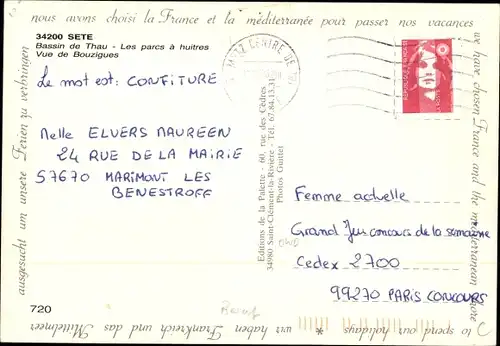 nous avons choisi la France et la méditerranée pour passer nos vacances
34200 SETE
Bassin de Thau - Les parcs à huîtres
Vue de Bouzigues
Le mot est : CONFITURE
Melle ELVERS MAUREEN
24 RUE DE LA MAIRIE
57670 MARIMONT LES
BENESTROFF
720
Editions de la Palette - 60, rue des Cèdres
34980 Saint-Clément-la-Rivière - Tél. 67.84.13.31
Photos Guittet
CENTRE DE
Femme actuelle
Grand Jeu concours de la semaine
Cedex 2700
99270 PARIS CONCOURS
we have chosen France and the mediterranean shore
to spend our holidays
wir haben Frankreich und das Mittelmeer
ausgesucht um unsere Ferien zu verbringen